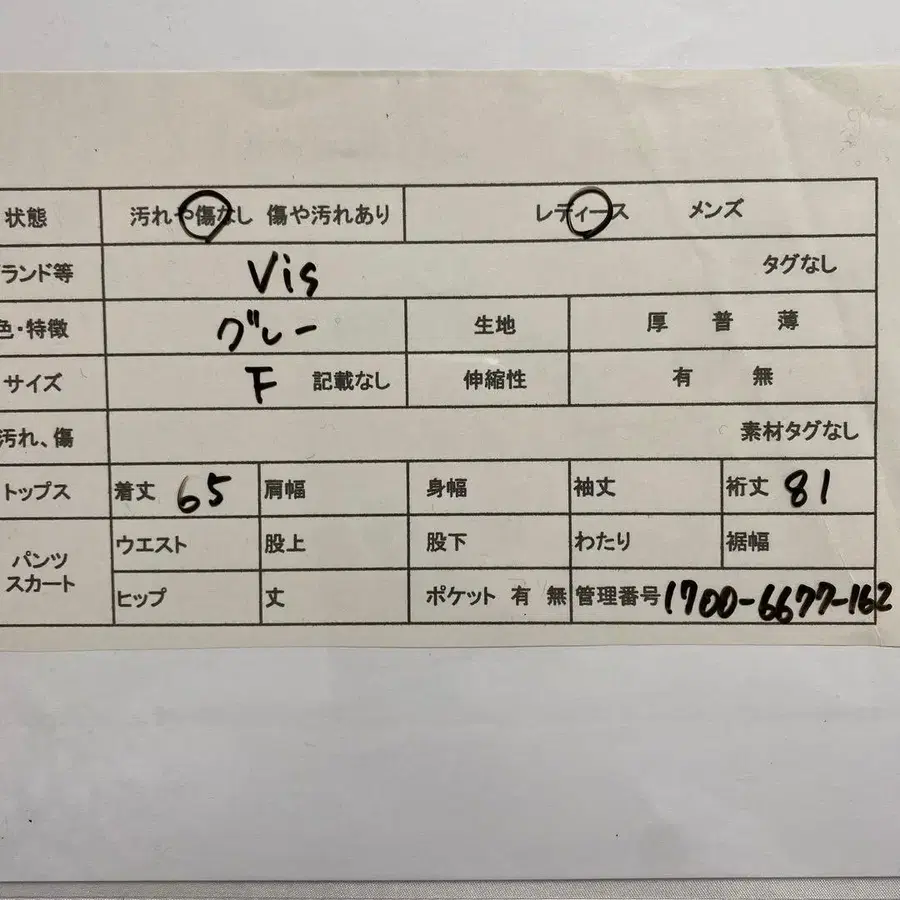 状態 汚れや傷なし 傷や汚れあり レディース メンズ
ランド等 Vis タグなし
色・特徴 グレー 生地 厚 普 薄
サイズ F 記載なし 伸縮性 有 無
汚れ、傷 素材タグなし
トップス 着丈 65 肩幅 身幅 袖丈 裄丈 81
パンツ ウエスト 股上 股下 わたり 裾幅
スカート ヒップ 丈 ポケット 有 無 管理番号 1700-6677-162